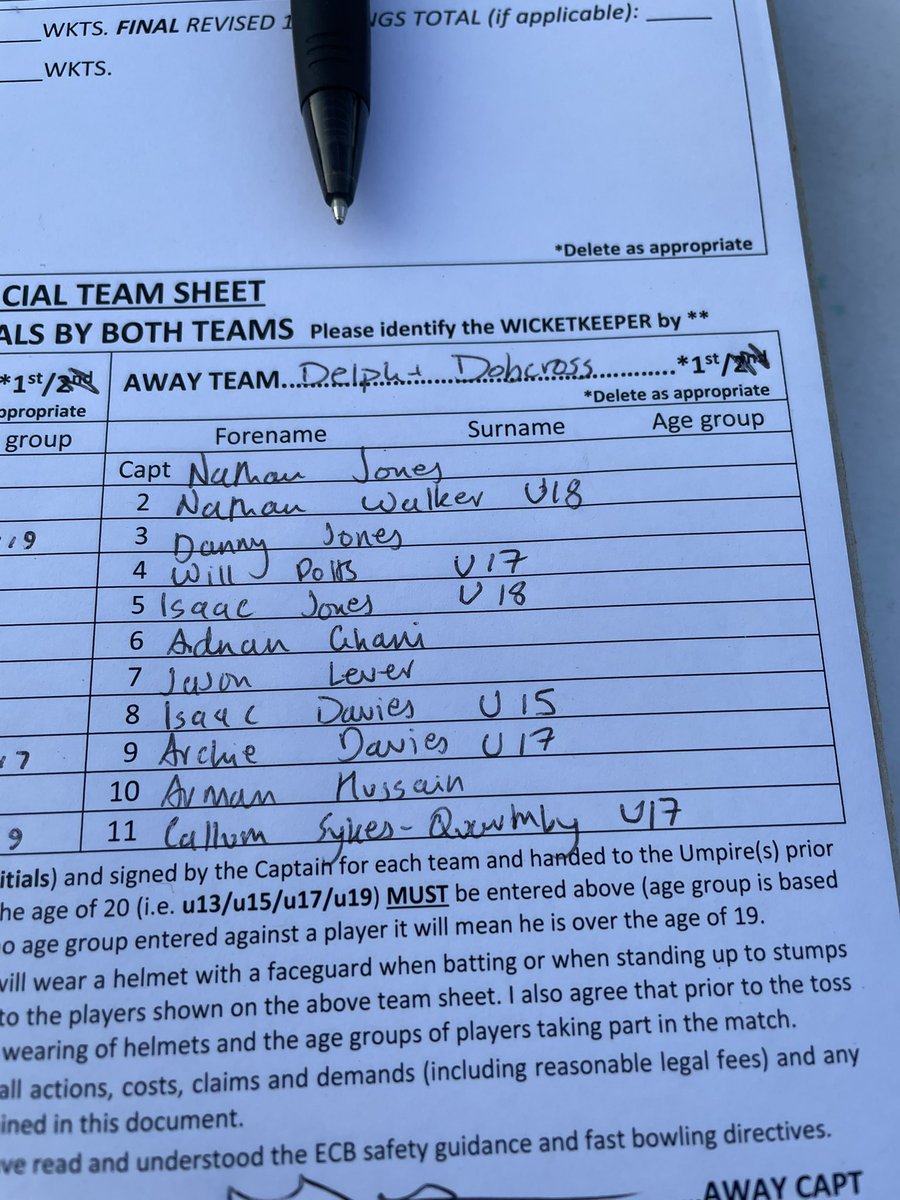 WKTS. FINAL REVISED 1 GS TOTAL (if applicable):
WKTS.
*Delete as appropriate
CIAL TEAM SHEET
ALS BY BOTH TEAMS Please identify the WICKETKEEPER by **
*1st/2nd AWAY TEAM Delph + Dobcross *1st/2nd
ppropriate *Delete as appropriate
group Forename Surname Age group
Capt Nathan Jones
2 Nathan Walker U18
9 3 Danny Jones
4 Will Potts U17
5 Isaac Jones U18
6 Adnan Ghani
7 Jason Lever
8 Isaac Davies U15
7 9 Archie Davies U17
10 Arman Hussain
9 11 Callum Sykes- U17
itials) and signed by the Captain for each team and handed to the Umpire(s) prior
he age of 20 (i.e. u13/u15/u17/u19) MUST be entered above (age group is based
o age group entered against a player it will mean he is over the age of 19.
will wear a helmet with a faceguard when batting or when standing up to stumps
to the players shown on the above team sheet. I also agree that prior to the toss
wearing of helmets and the age groups of players taking part in the match.
all actions, costs, claims and demands (including reasonable legal fees) and any
ined in this document.
ve read and understood the ECB safety guidance and fast bowling directives.
AWAY CAPT